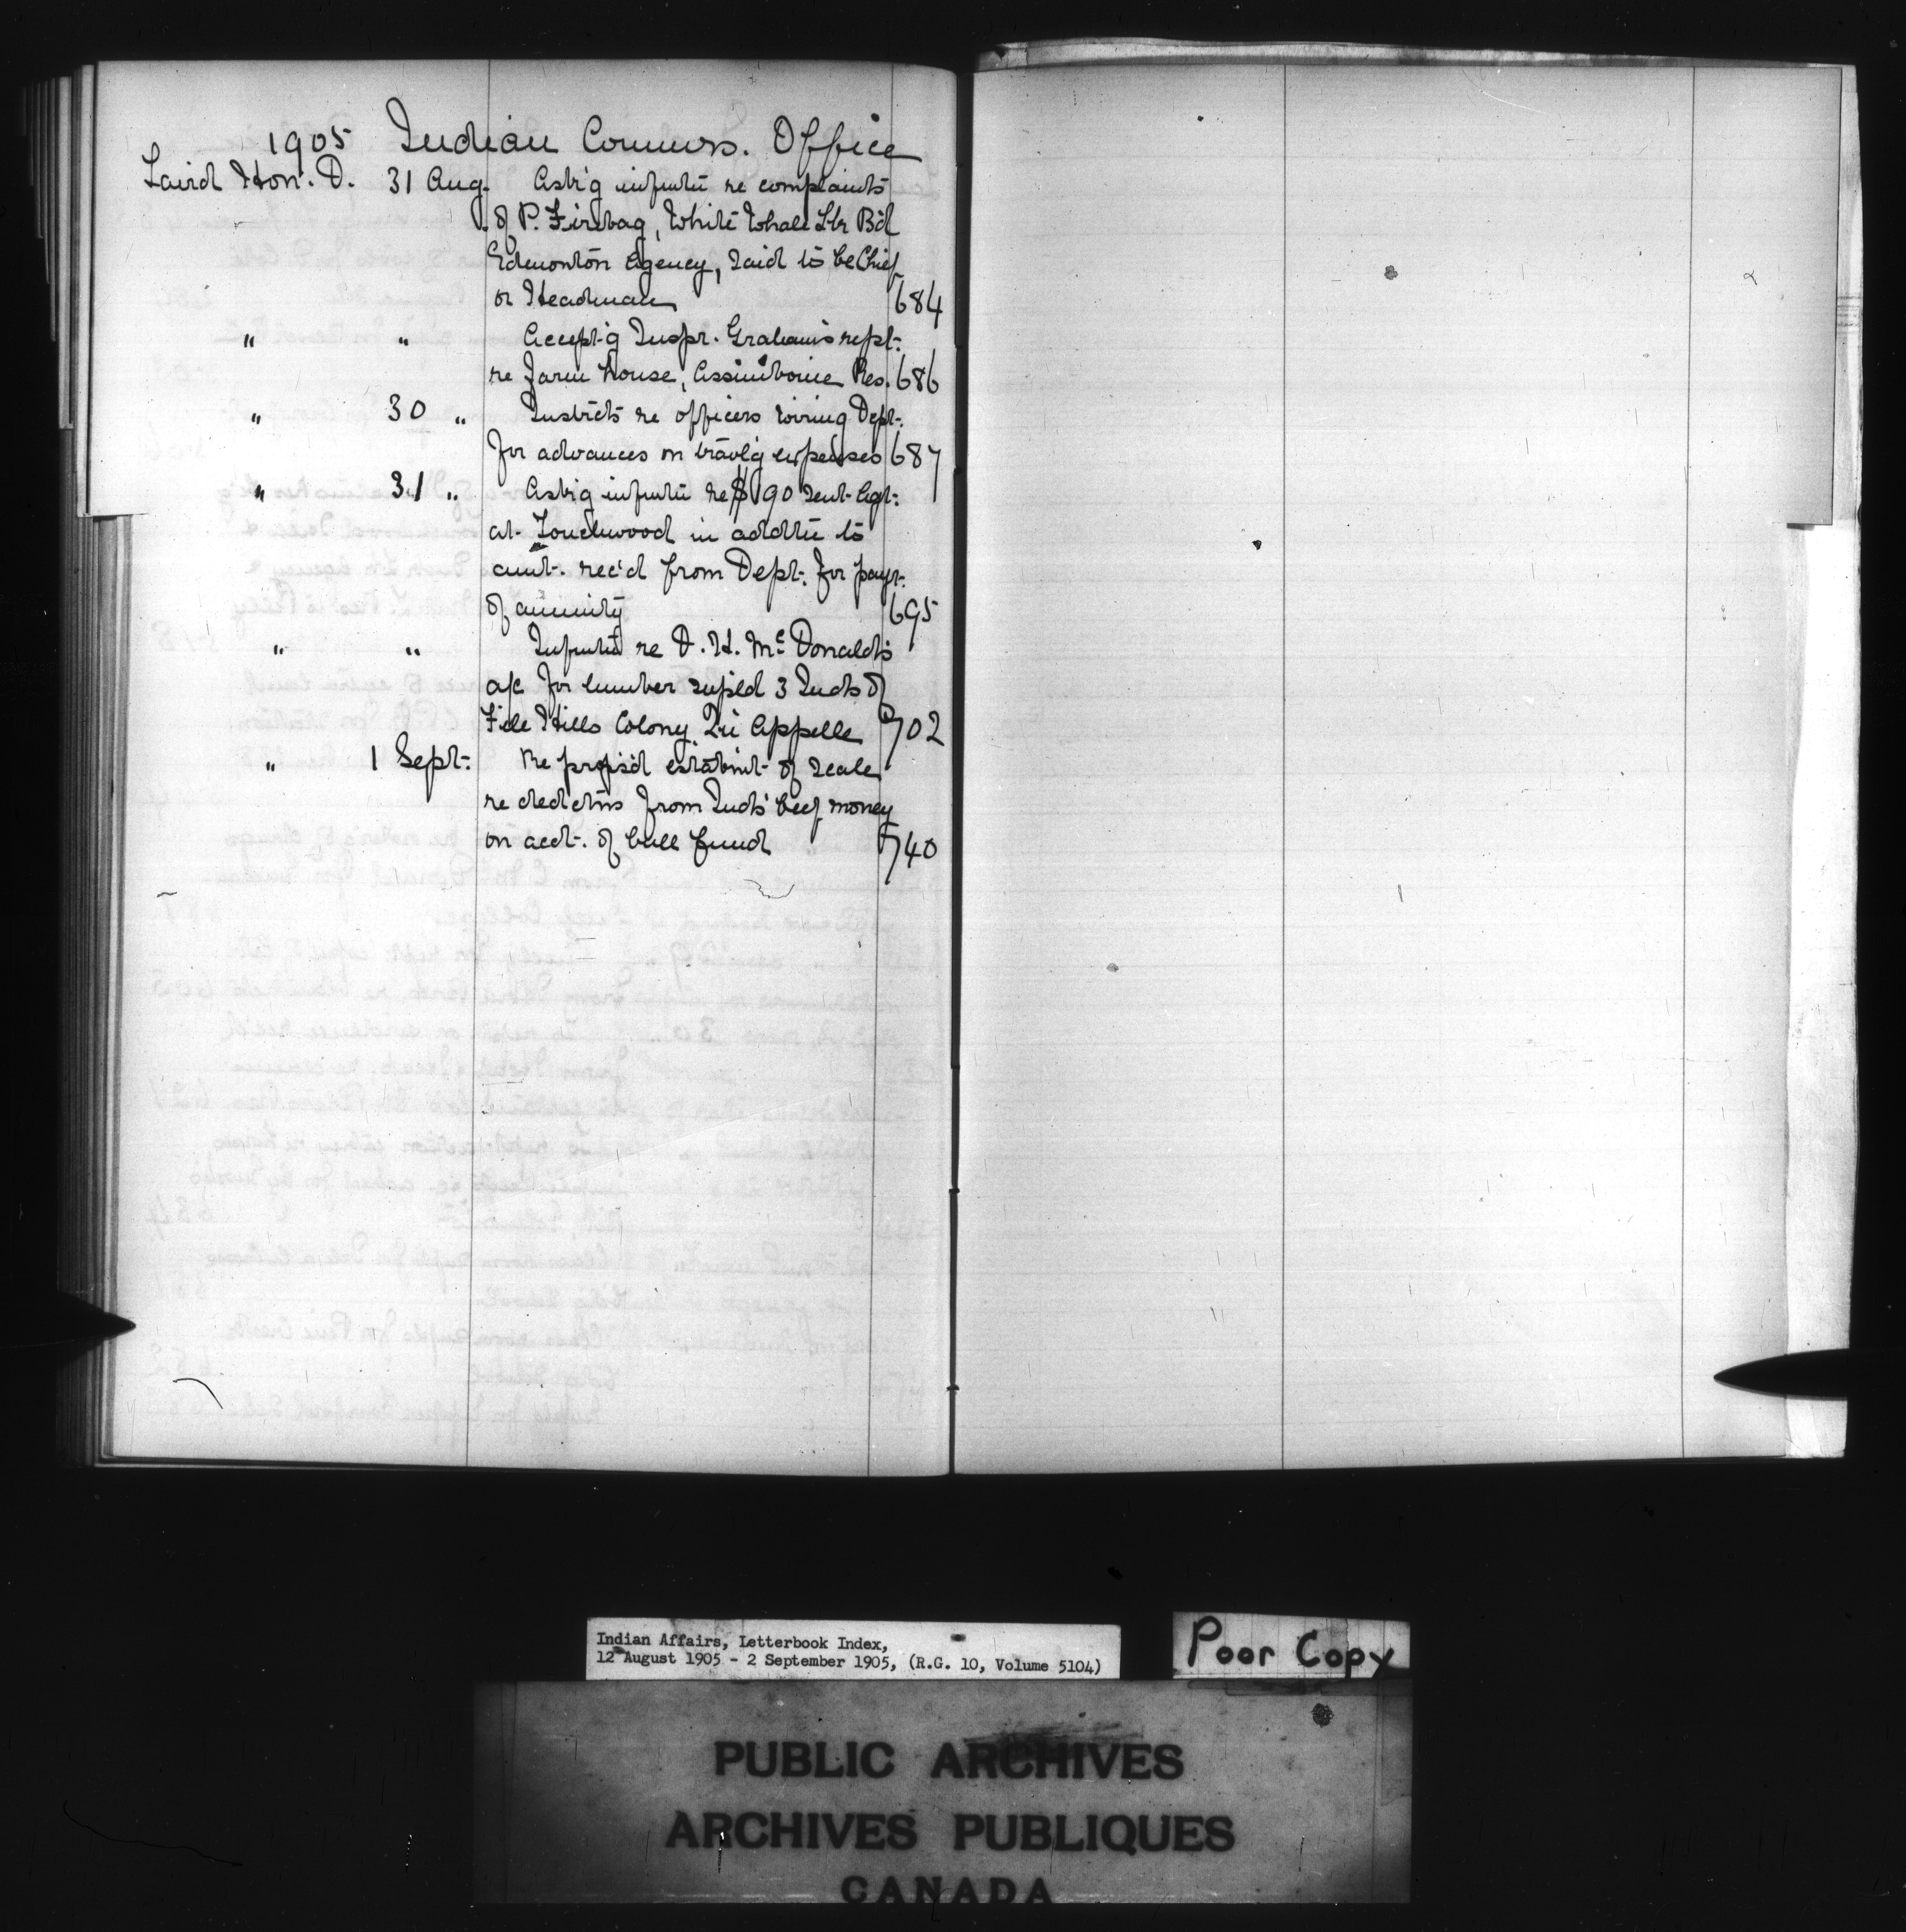 1905 Indian Commrs. Office
Laird Hon. D. 31 Aug. Ask'g infmtn re complaints
of P. Firebag, White Whale Lk Bd
Edmonton Agency, said to be Chief
or Headman 684
" " Accept'g Inspr. Graham's rept.
re farm house, Assiniboine Res. 686
" 30 " Instrcts re officers wiring Dept.
for advances on travl'g expenses 687
" 31 " Ask'g infmtn re $190 sent Agt.
at Touchwood in addtn to
amt. rec'd from Dept. for paymt.
of annuity 695
" " Infmtn re D. H. McDonald's
a/c for lumber suppld 3 Inds of
File Hills Colony, Qu'Appelle 702
" 1 Sept. Re propsd establmt of scale
re dedctns from Inds' beef money
on acct. of bull fund 740
Indian Affairs, Letterbook Index,
12 August 1905 - 2 September 1905, (R.G. 10, Volume 5104)
Poor Copy
PUBLIC ARCHIVES
ARCHIVES PUBLIQUES
CANADA